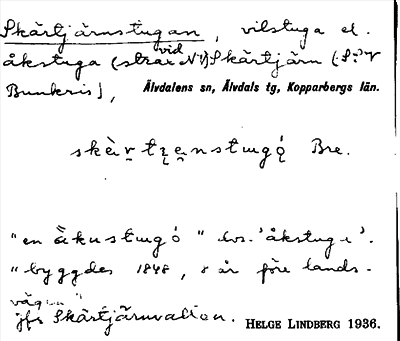 Skärtjärnstugan, vilstuga el.
åkstuga (strax N) vid Skärtjärn (S. V
Bunkris),
Älvdalens sn, Älvdals tg, Kopparbergs län.
Bre.
"en
"byggdes 1848, 8 år före lands-
vägen"
jfr Skärtjärnvallen.
HELGE LINDBERG 1936.